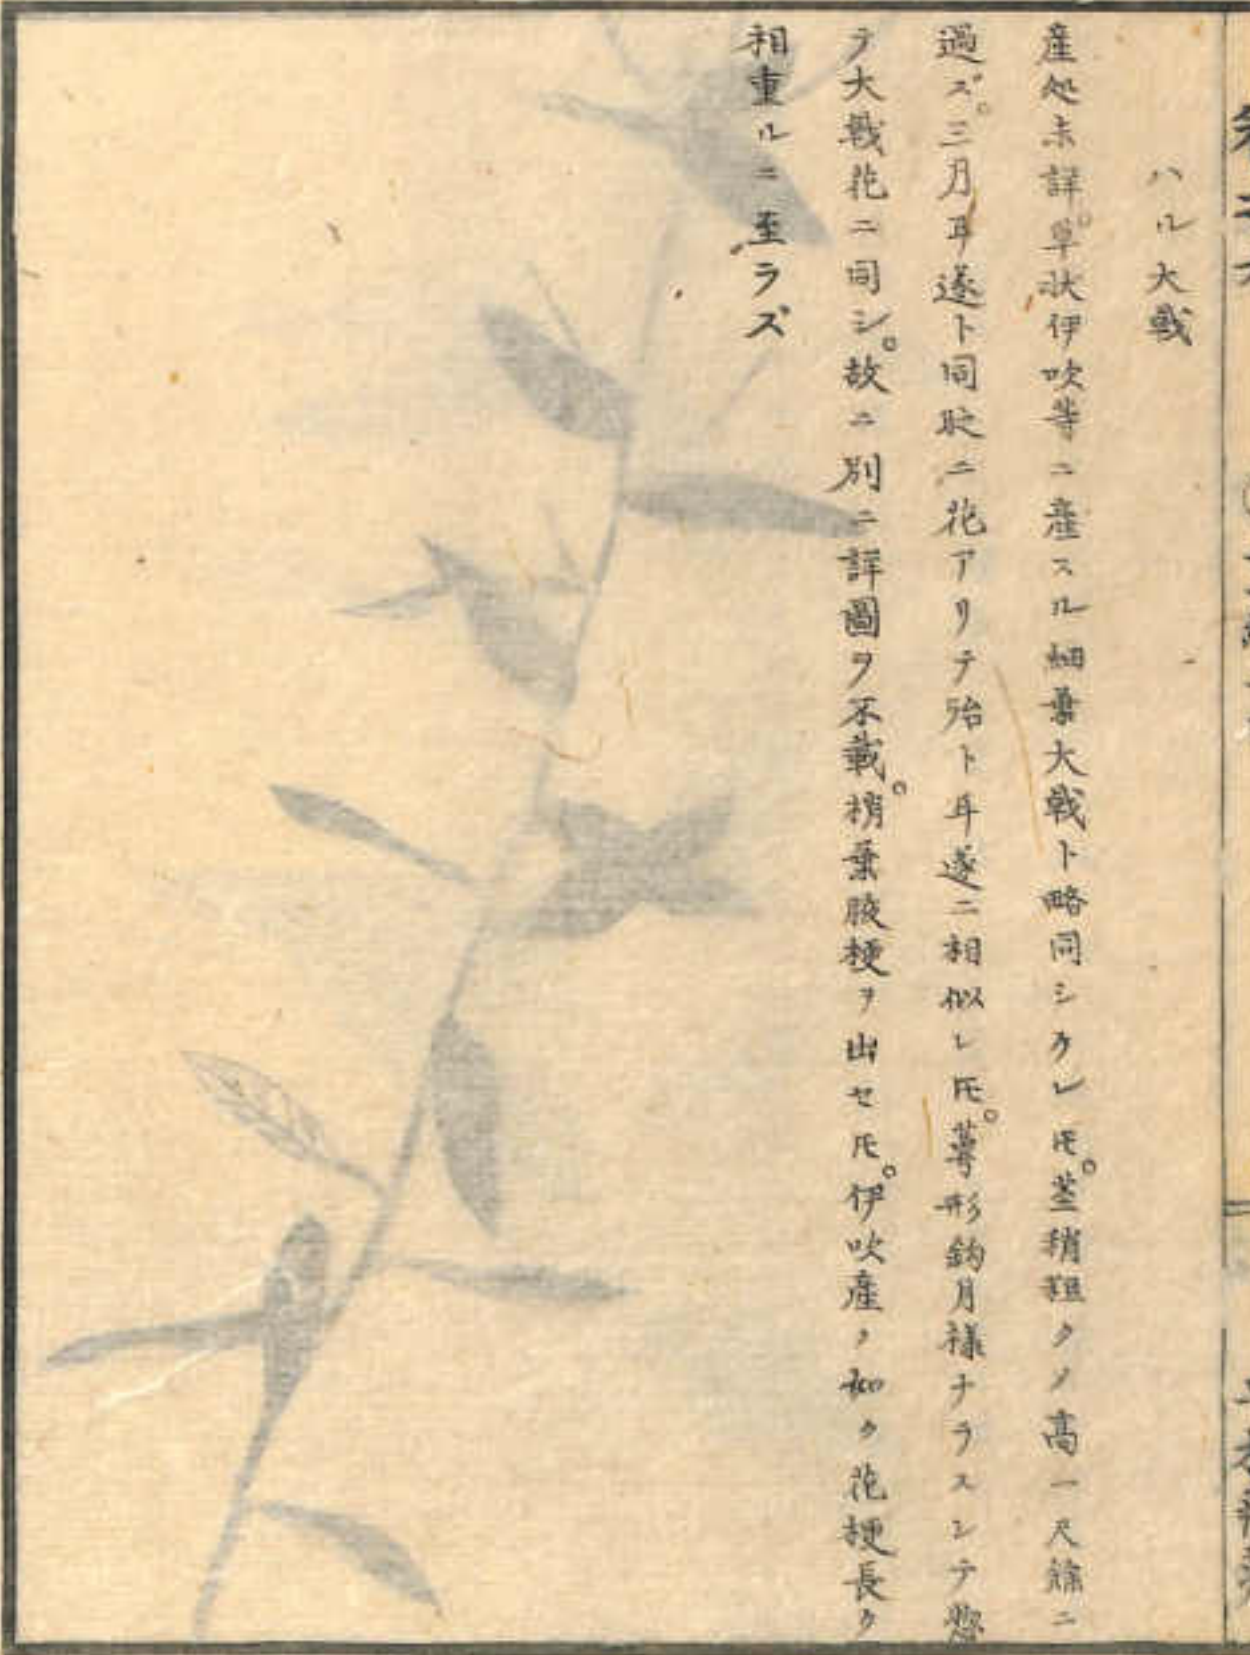 ハル大戟
産処未詳。草状伊吹等ニ産スル細葉大戟ト略同シケレ𪜈。茎稍粗クノ高一尺餘ニ
過ズ。三月耳遂ト同時ニ花アリテ殆ト耳遂ニ相似レ𪜈。萼形鈎月様ナラスシテ
テ大戟花ニ同シ。故ニ別ニ詳圖ヲ不載。梢葉腋梗ヲ出セ𪜈。伊吹産ノ如ク花梗長ク
相重ルニ至ラズ